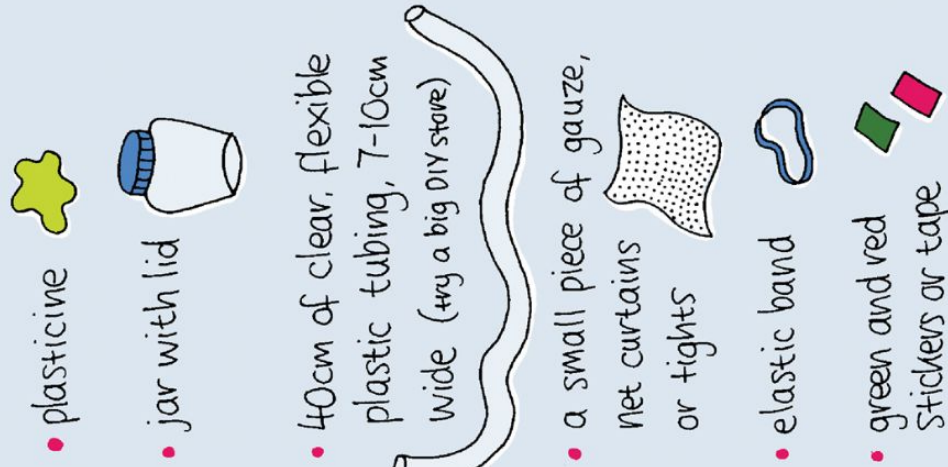 • plasticine
• jar with lid
• 40cm of clear, flexible
plastic tubing, 7-10cm
wide (try a big DIY store)
• a small piece of gauze,
net curtains
or tights
• elastic band
• green and red
Stickers or tape